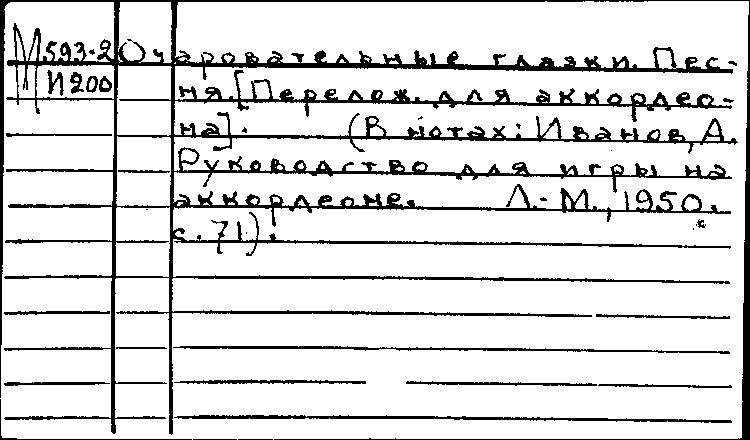 М 593-2 Очаровательные глазки. Пес-
И200 ня. [Перелож. для аккордео-
на]. (В нотах: Иванов, А.
Руководство для игры на
аккордеоне. Л.-М., 1950.
с. 71).